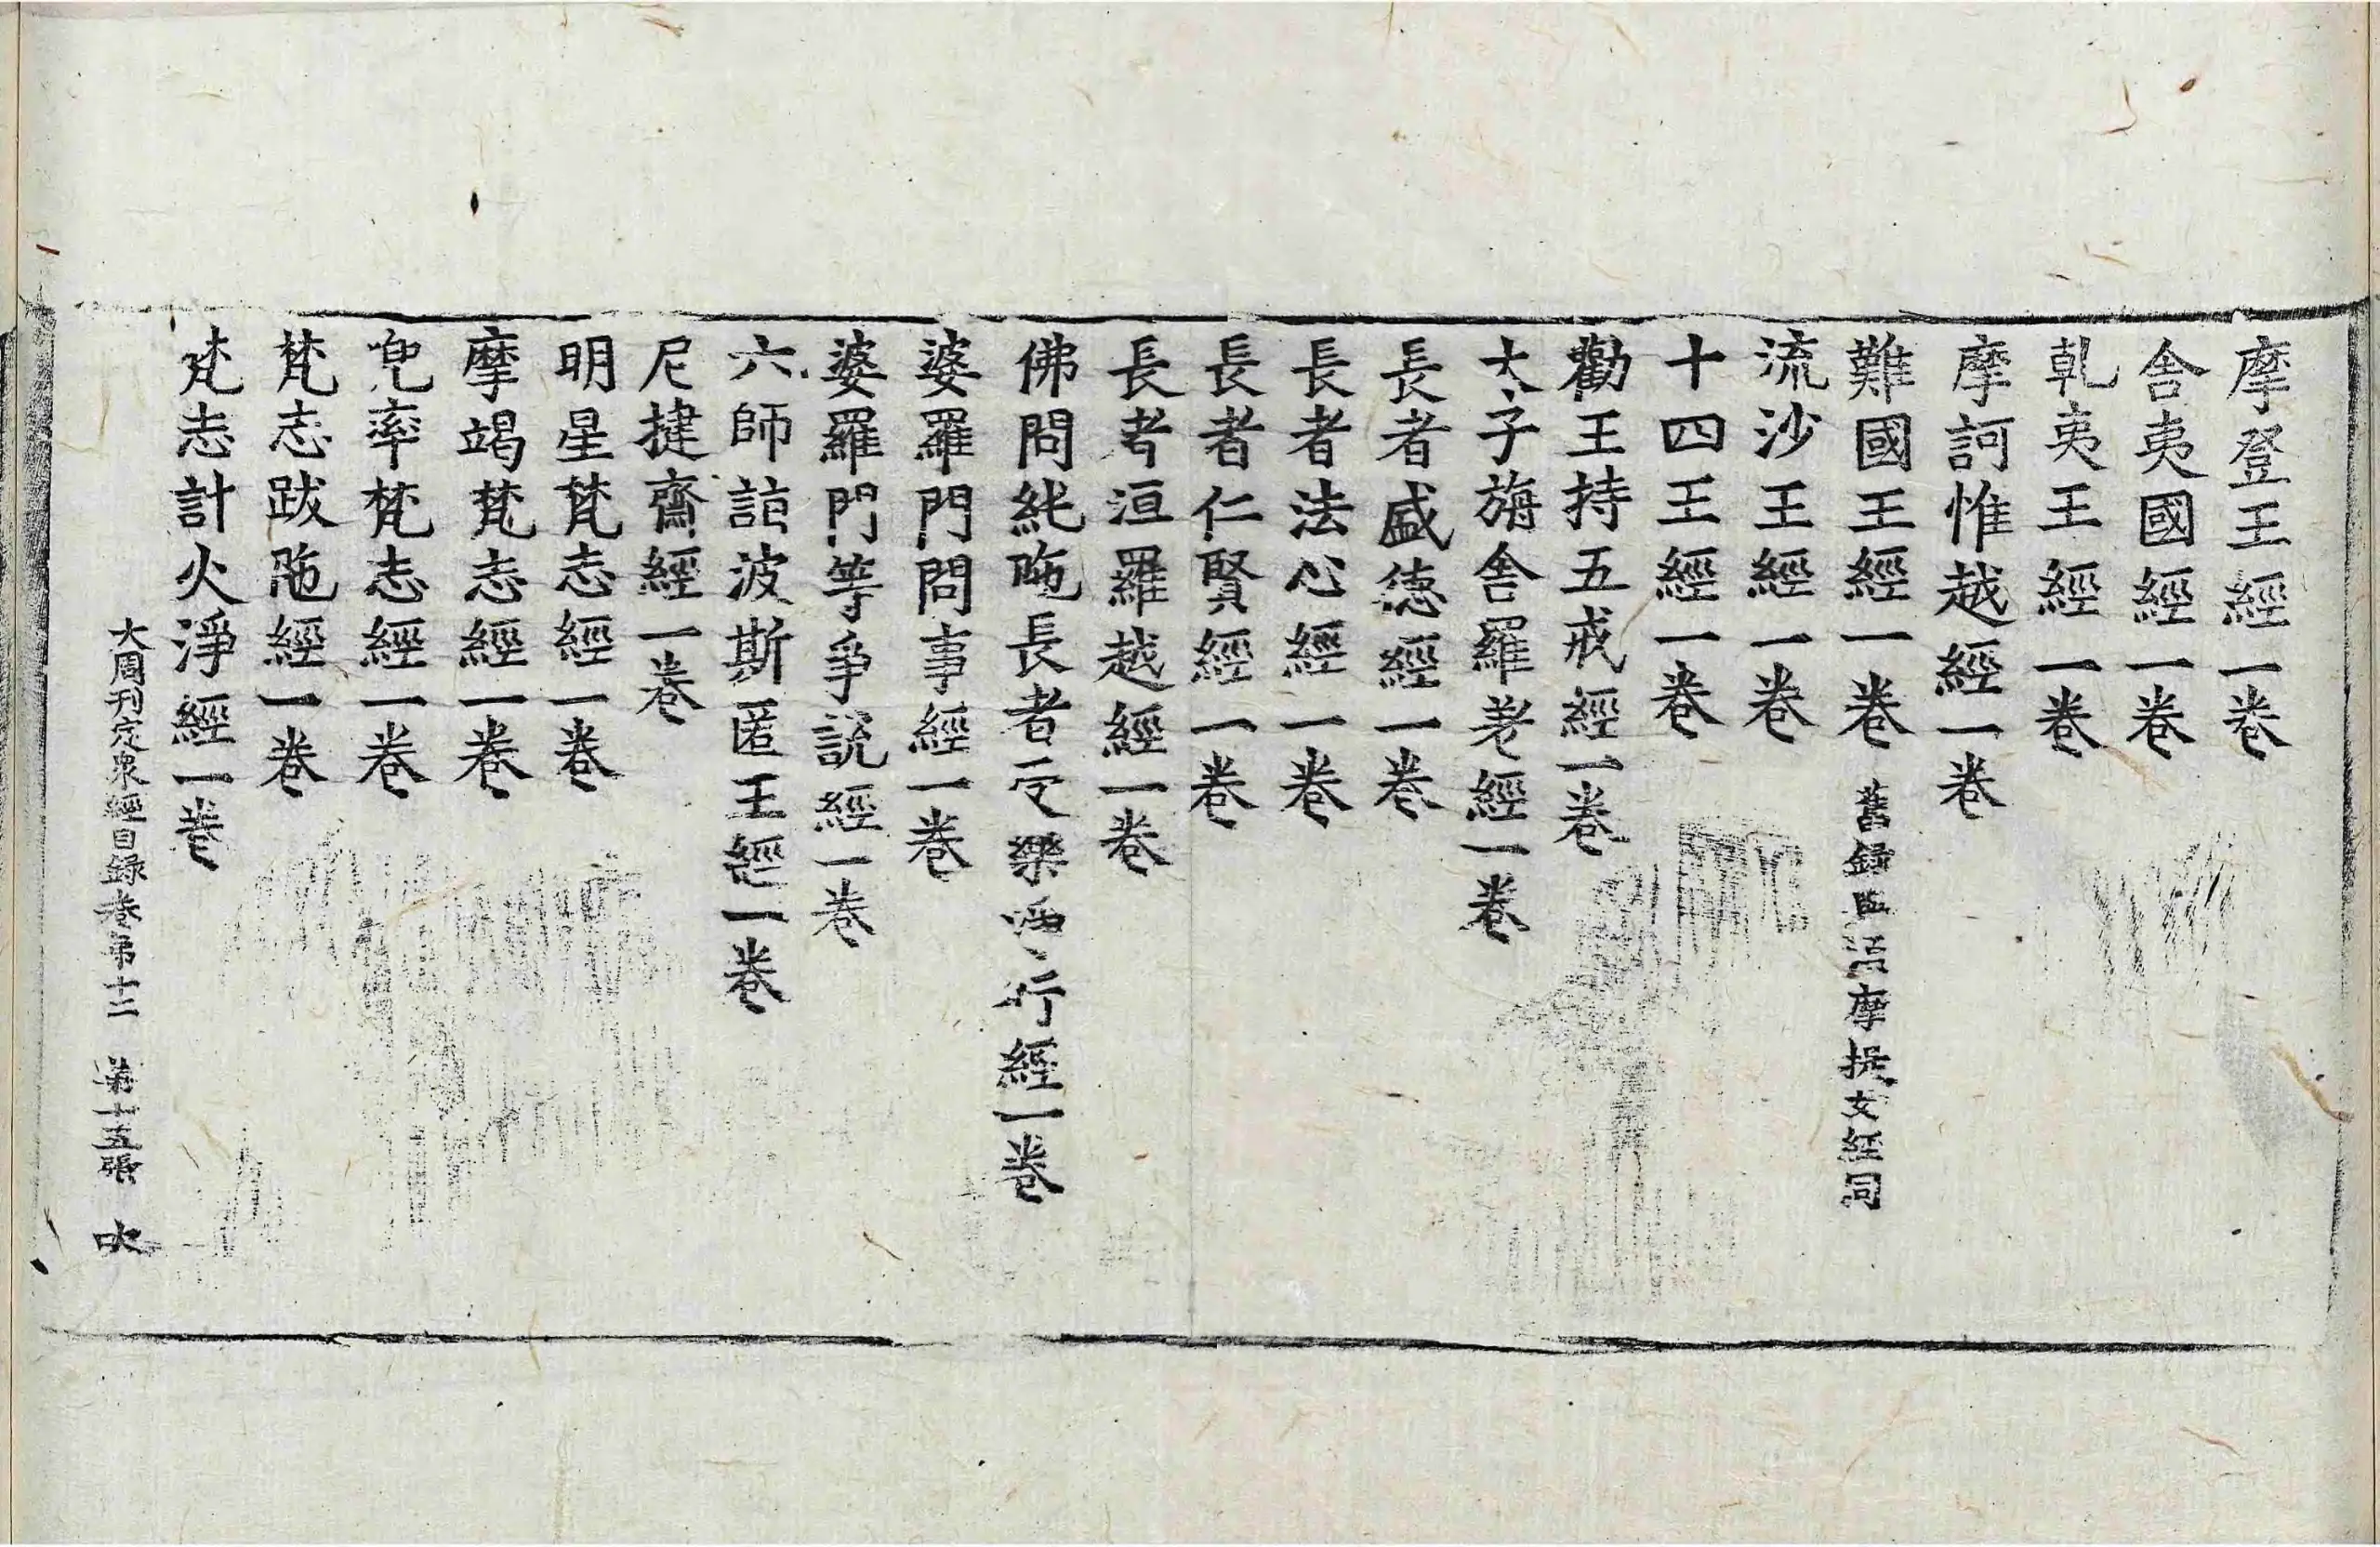 摩登王經一卷
舍夷國經一卷
乹夷王經一卷
摩訶惟越經一卷
難國王經一卷 舊錄 摩 女經同
流沙王經一卷
十四王經一卷
勸王持五戒經一卷
太子旃舍羅老經一卷
長者盛德經一卷
長者法心經一卷
長者仁賢經一卷
長者洹羅越經一卷
佛問純陁長者受樂 行經一卷
婆羅門問事經一卷
婆羅門等爭說經一卷
六師詣波斯匿王經一卷
尼揵齋經一卷
明星梵志經一卷
摩竭梵志經一卷
兜率梵志經一卷
梵志跋陁經一卷
梵志計火淨經一卷
大周刊定衆經目録卷第十二 第十五張 吹